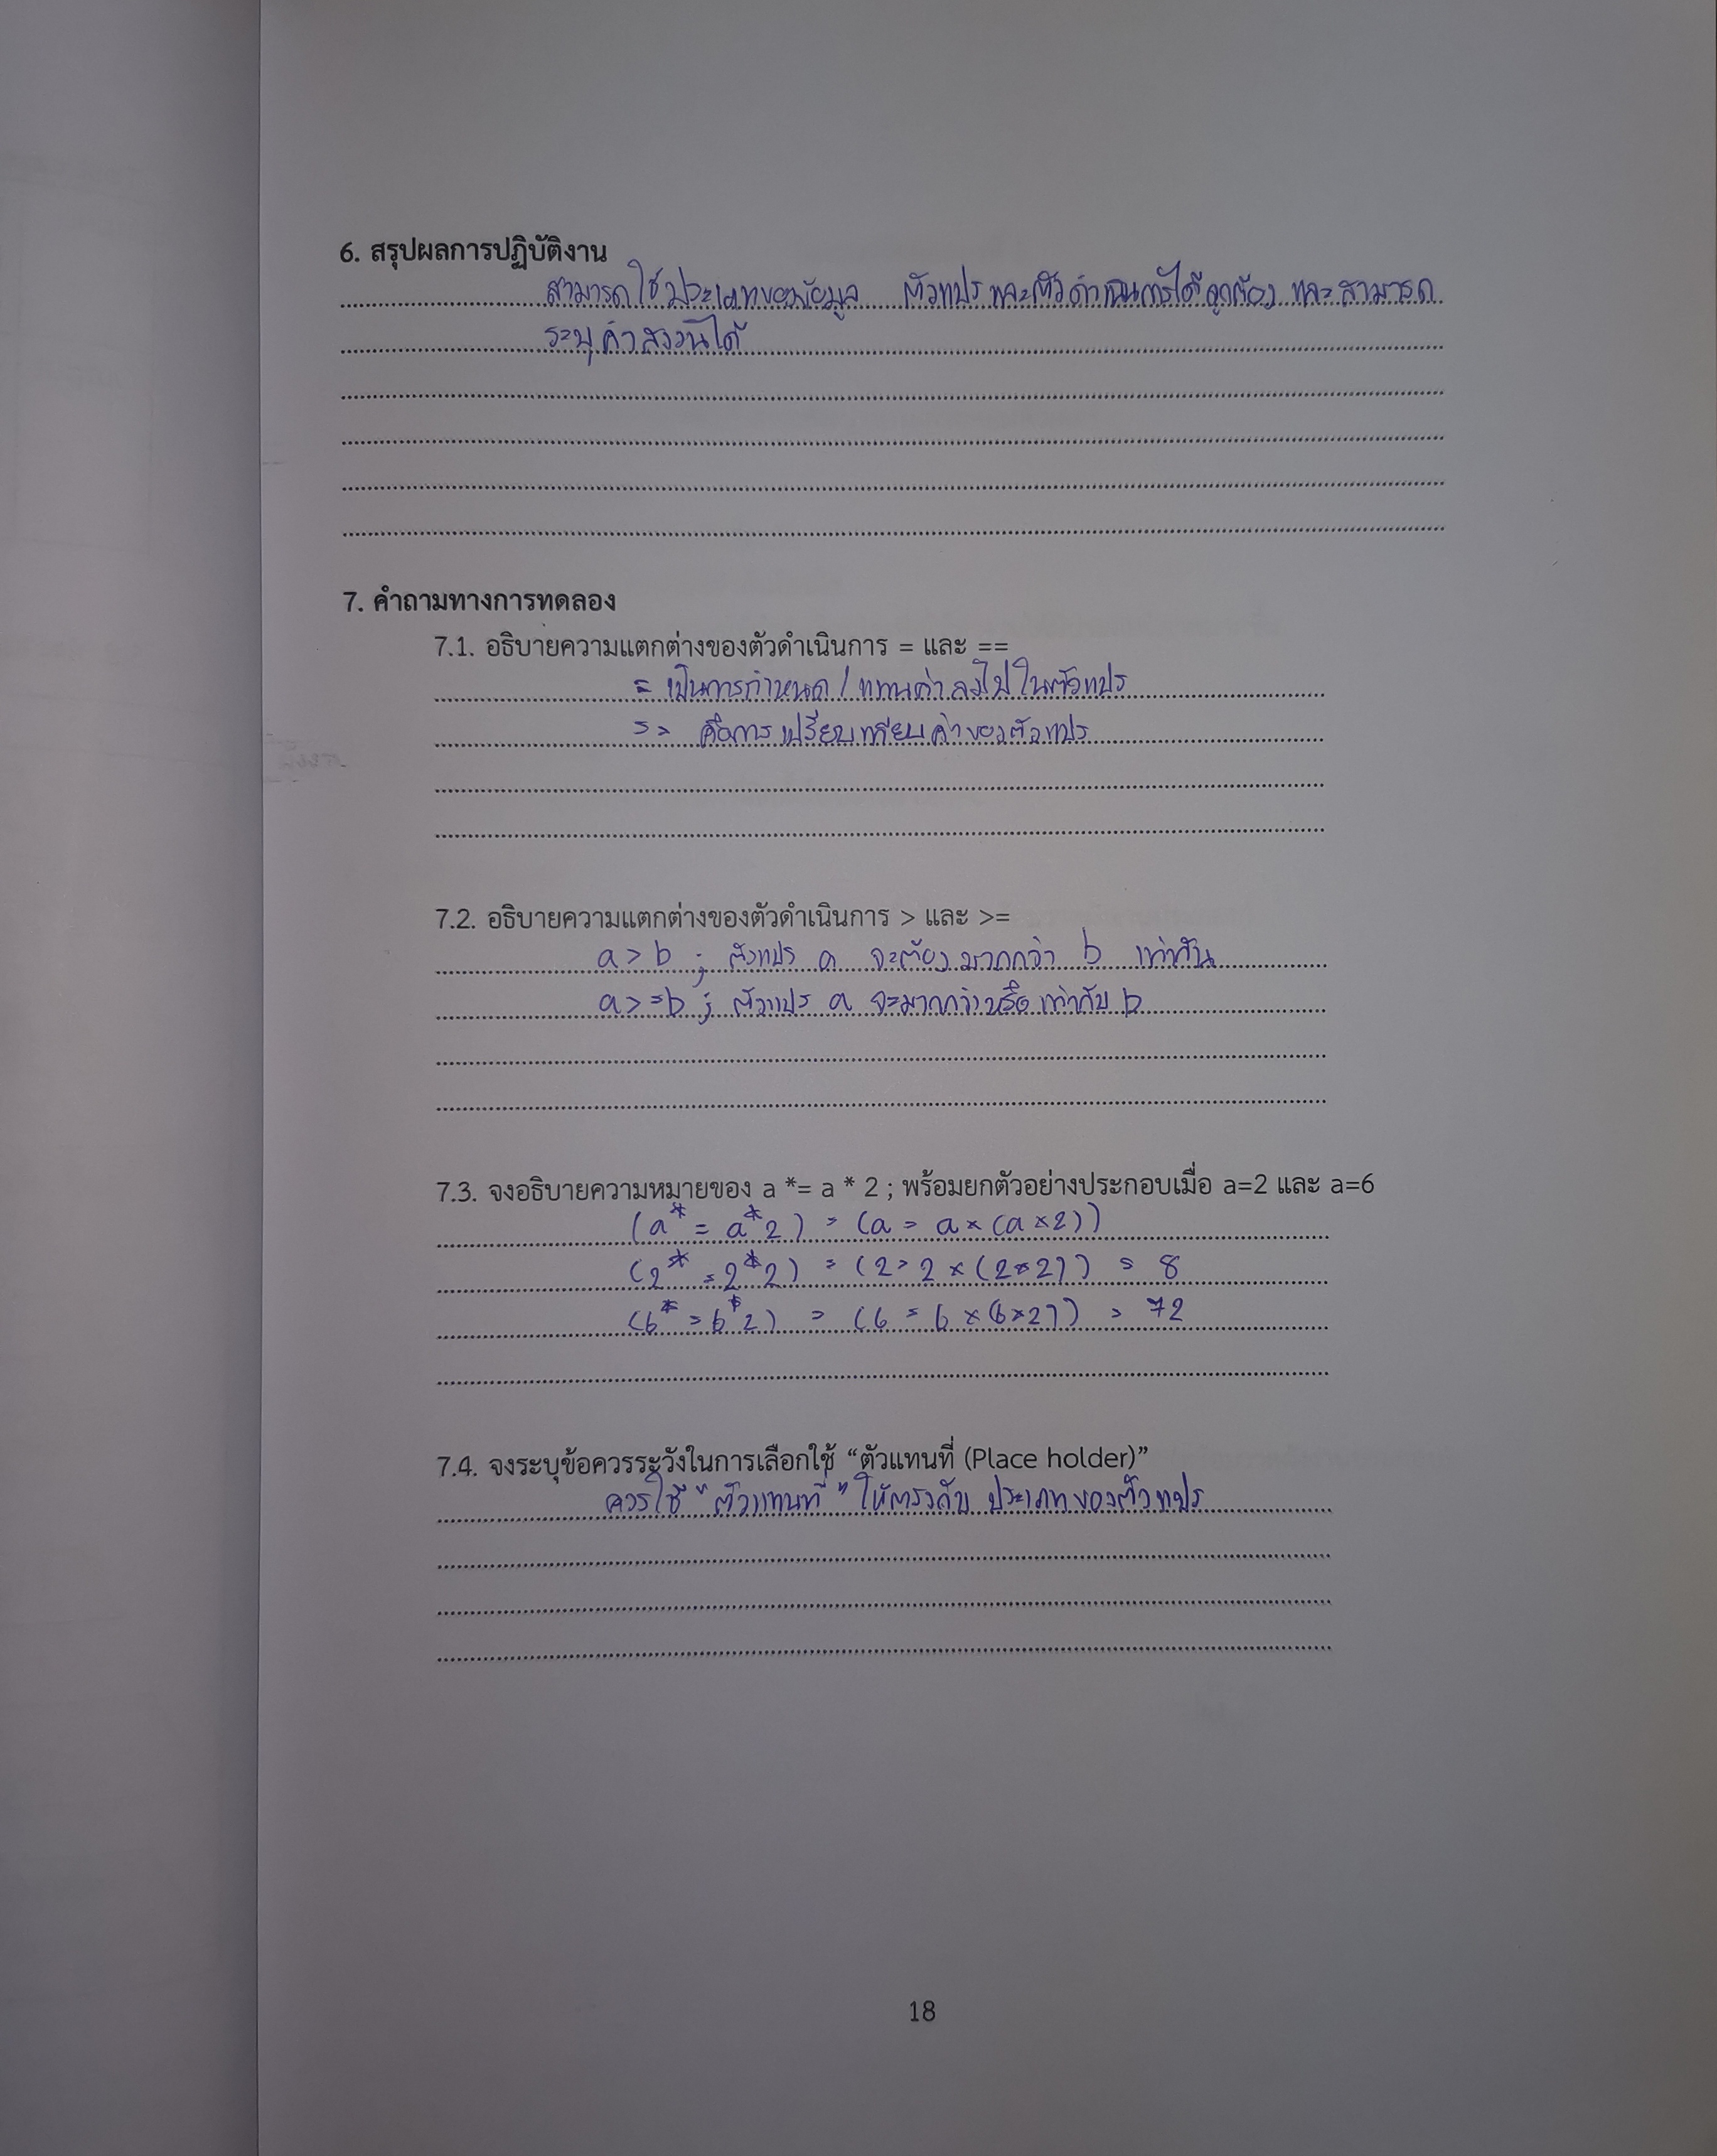 6. สรุปผลการปฏิบัติงาน
สามารถใช้ประเภทของข้อมูล ตัวแปร และตัวดำเนินการได้ถูกต้อง และสามารถ
ระบุค่าสงวนได้
7. คำถามทางการทดลอง
7.1. อธิบายความแตกต่างของตัวดำเนินการ = และ ==
= เป็นการกำหนด / แทนค่าลงไปในตัวแปร
== คือการเปรียบเทียบค่าของตัวแปร
7.2. อธิบายความแตกต่างของตัวดำเนินการ > และ >=
a > b ; ตัวแปร a จะต้องมากกว่า b เท่านั้น
a > =b ; ตัวแปร a จะมากกว่าหรือเท่ากับ b
7.3. จงอธิบายความหมายของ a *= a * 2 ; พร้อมยกตัวอย่างประกอบเมื่อ a=2 และ a=6
(a* = a*2) = (a = a × (a × 2))
(2* = 2*2) = (2 = 2 × (2×2)) = 8
(6* = 6*2) = (6 = 6 × (6×2)) = 72
7.4. จงระบุข้อควรระวังในการเลือกใช้ “ตัวแทนที่ (Place holder)”
ควรใช้ "ตัวแทนที่" ให้ตรงกับ ประเภทของตัวแปร
18